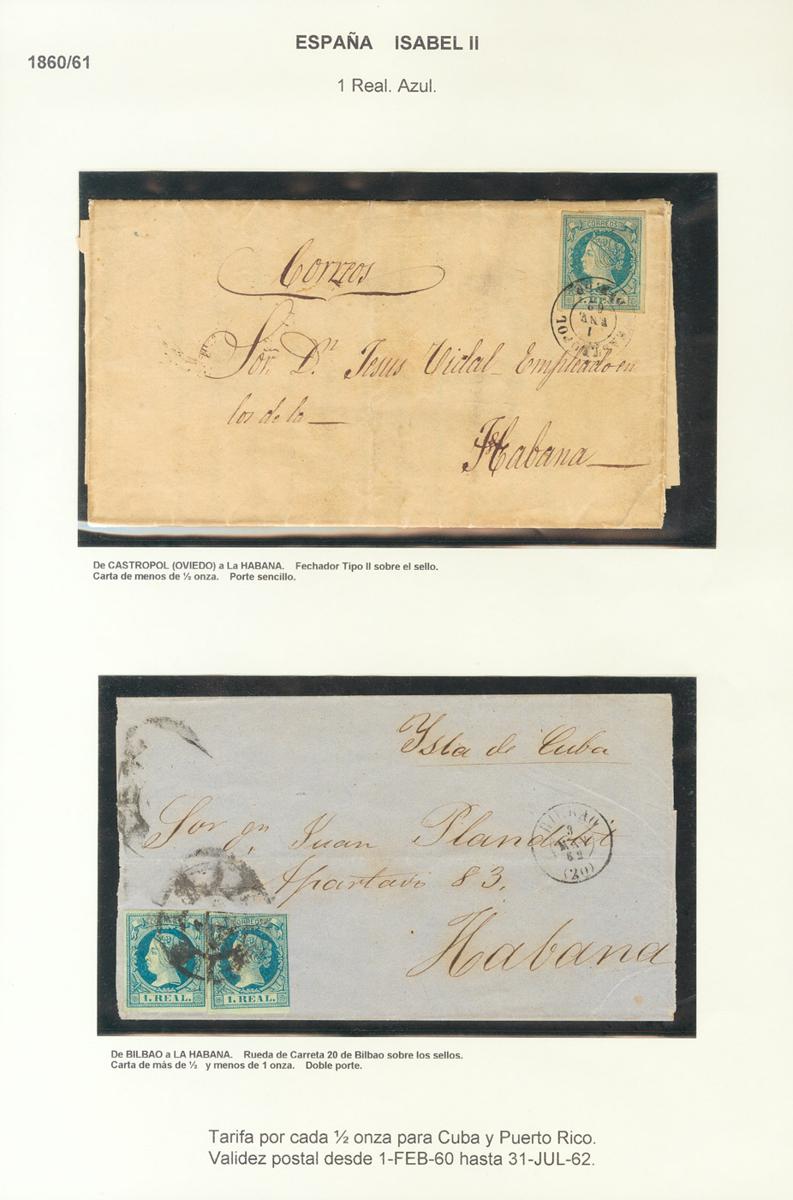 ESPAÑA ISABEL II
1860/61
1 Real. Azul.
CORREOS
Correos
Sor. Dn. Jesus Vidal Empleado en
los de la
Habana
De CASTROPOL (OVIEDO) a La HABANA. Fechador Tipo II sobre el sello.
Carta de menos de ½ onza. Porte sencillo.
Ysla de Cuba
BILBAO
3
62
(20)
Sor Dn Juan
Apartado 83.
Habana
1. REAL. 1. REAL.
De BILBAO a LA HABANA. Rueda de Carreta 20 de Bilbao sobre los sellos.
Carta de más de ½ y menos de 1 onza. Doble porte.
Tarifa por cada ½ onza para Cuba y Puerto Rico.
Validez postal desde 1-FEB-60 hasta 31-JUL-62.